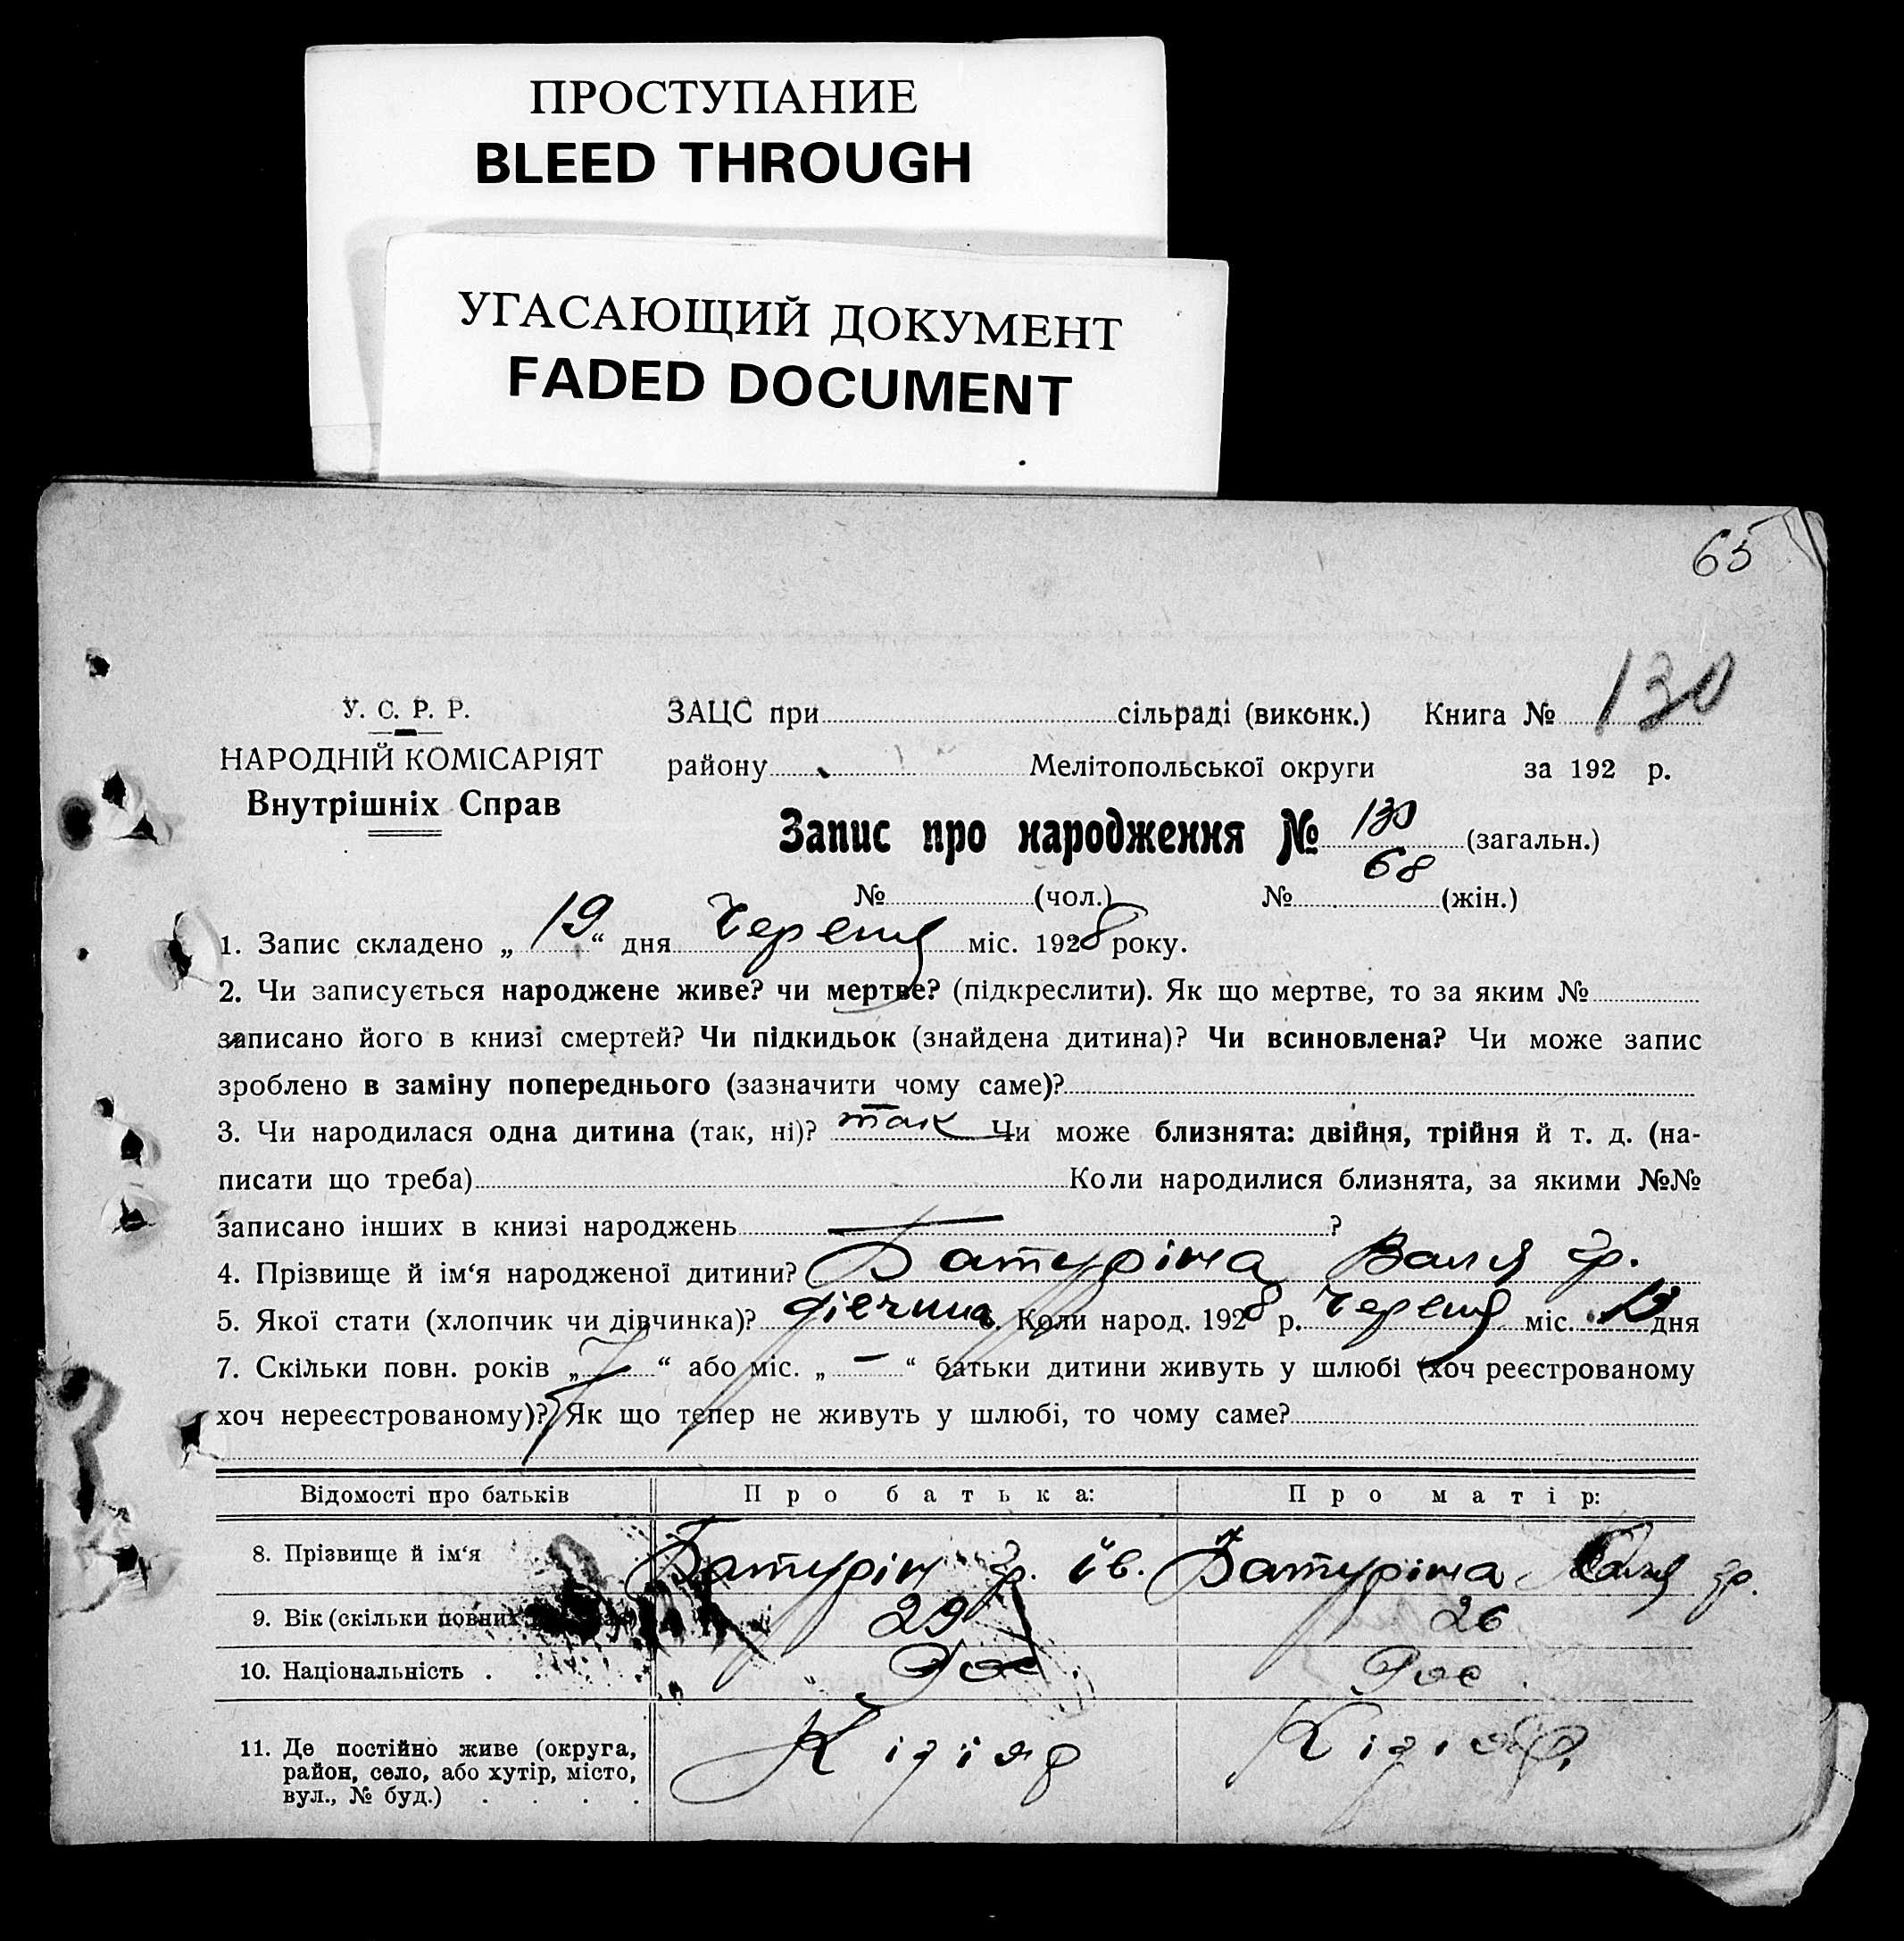 ПРОСТУПАНИЕ
BLEED THROUGH
УГАСАЮЩИЙ ДОКУМЕНТ
FADED DOCUMENT
65
У. С. Р. Р.
НАРОДНІЙ КОМІСАРІЯТ
Внутрішніх Справ
ЗАЦС при сільраді (виконк.) Книга № 130
району Мелітопольської округи за 192 р.
Запис про народження № 130 (загальн.)
68
№ (чол.) № (жін.)
1. Запис складено „ 19 “ дня Червня міс. 1928 року.
2. Чи записується народжене живе? чи мертве? (підкреслити). Як що мертве, то за яким №
записано його в книзі смертей? Чи підкидьок (знайдена дитина)? Чи всиновлена? Чи може запис
зроблено в заміну попереднього (зазначити чому саме)?
3. Чи народилася одна дитина (так, ні)? так Чи може близнята: двійня, трійня й т. д. (на-
писати що треба) Коли народилися близнята, за якими №№
записано інших в книзі народжень — ?
4. Прізвище й ім‘я народженої дитини? Батуріна Валя гр.
5. Якої стати (хлопчик чи дівчинка)? дівчина. Коли народ. 1928 р. Червня міс. дня
7. Скільки повн. років „ 7 “ або міс. „ — “ батьки дитини живуть у шлюбі (хоч реєстрованому
хоч нереєстрованому)? Як що тепер не живуть у шлюбі, то чому саме?
Відомості про батьків Про батька: Про матір:
8. Прізвище й ім‘я Батурін гр. ів. Батуріна гр.
9. Вік (скільки повних 29 26
10. Національність . Рос. Рос.
11. Де постійно живе (округа,
район, село, або хутір, місто,
вул., № буд.) . . . .